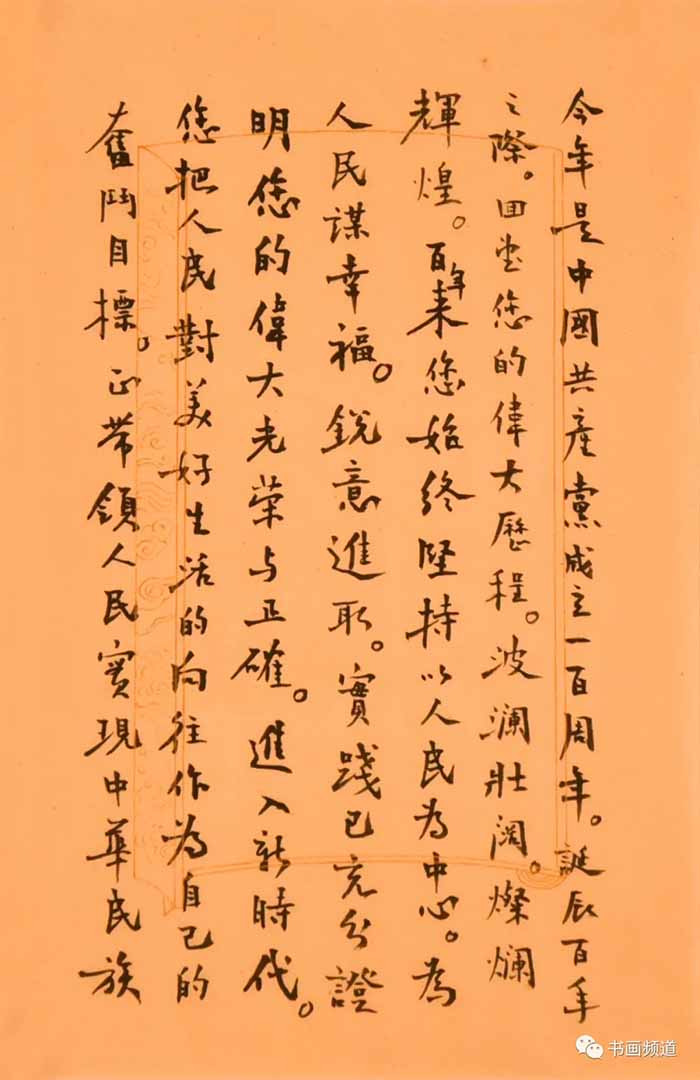 今年是中國共產黨成立一百周年。誕辰百年
之際。回望您的偉大歷程。波澜壯阔。燦斓
輝煌。百年来您始终堅持以人民為中心。為
人民謀幸福。銳意進取。實踐已充分證
明您的偉大光荣与正確。進入新時代。
您把人民對美好生活的向往作為自己的
奮鬥目標。正带領人民實現中華民族
书画频道